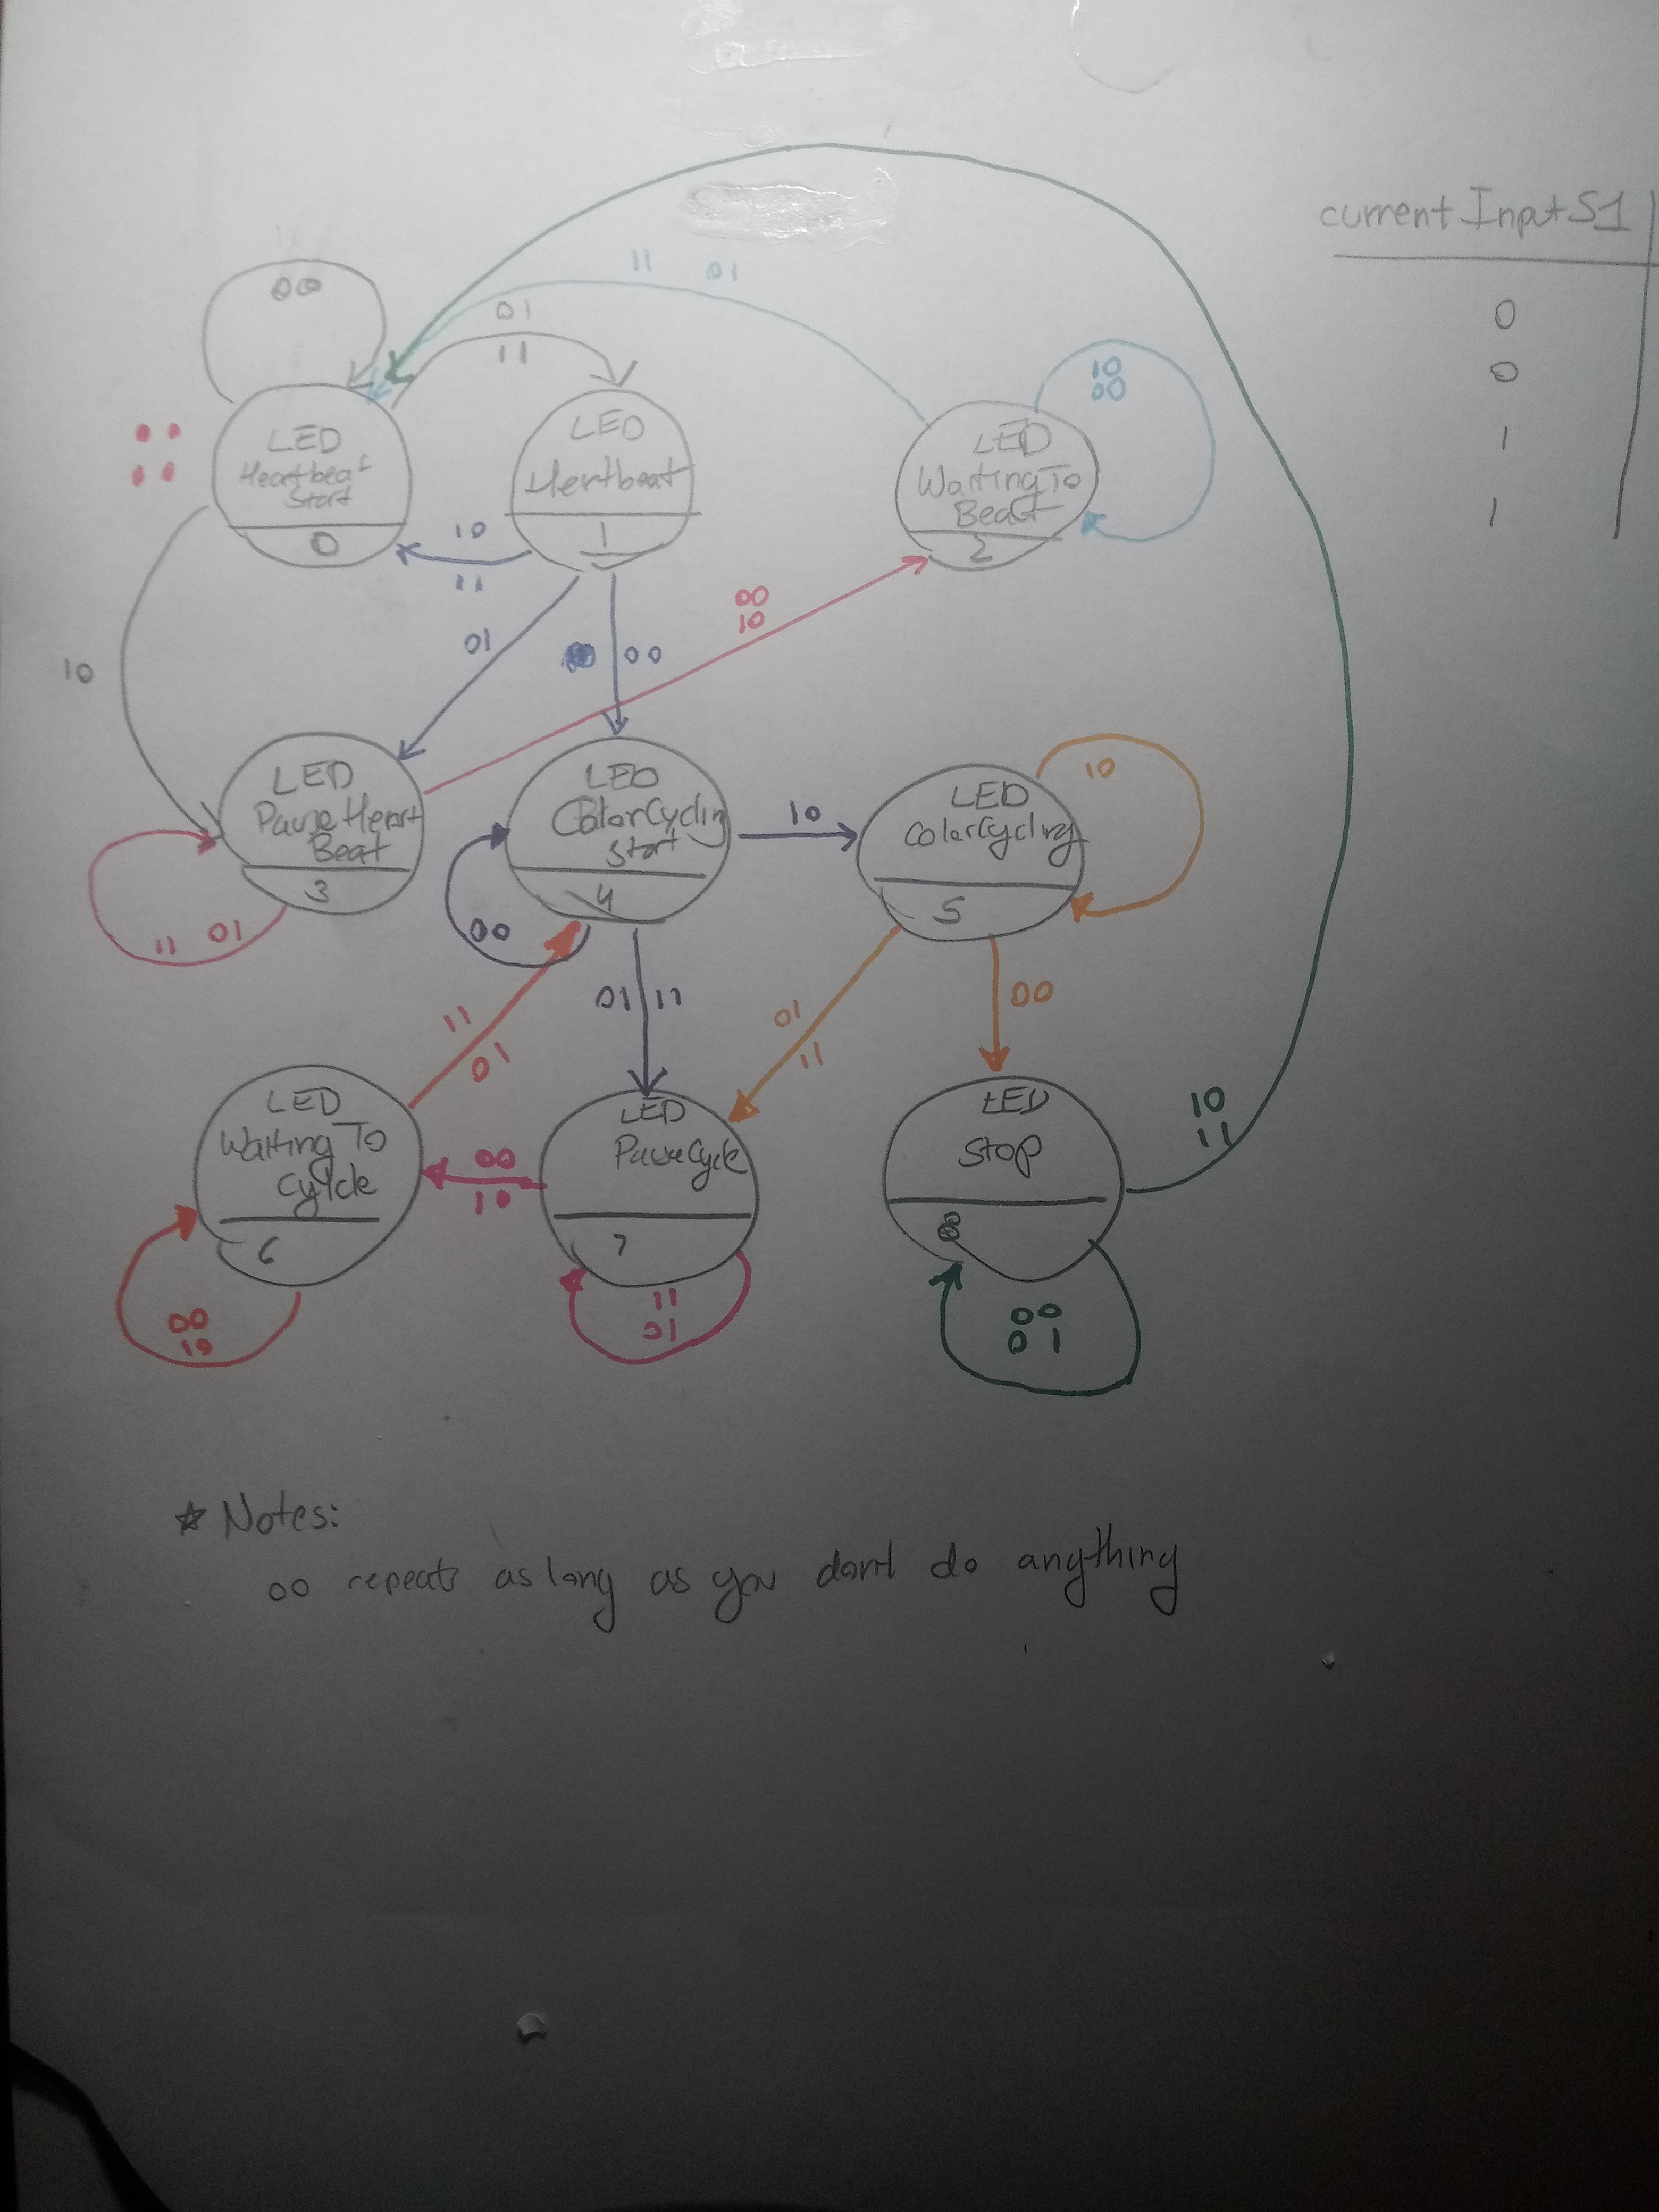 currentInputS1
0
0
1
1
11 01
00
01
11
10
00
LED
Heartbeat
Start
0
LED
Hertbeat
1
LED
WaitingTo
Beat
2
10
11
00
10
01
00
10
LED
Pause Heart
Beat
3
LED
ColorCycling
Start
4
10
LED
ColorCycling
5
10
11 01
00
01 11
01
11
00
11
01
LED
Waiting To
Cylcle
6
00
10
LED
PauseCycle
7
LED
Stop
8
10
11
00
10
11
01
00
01
* Notes:
00 repeats as long as you don't do anything